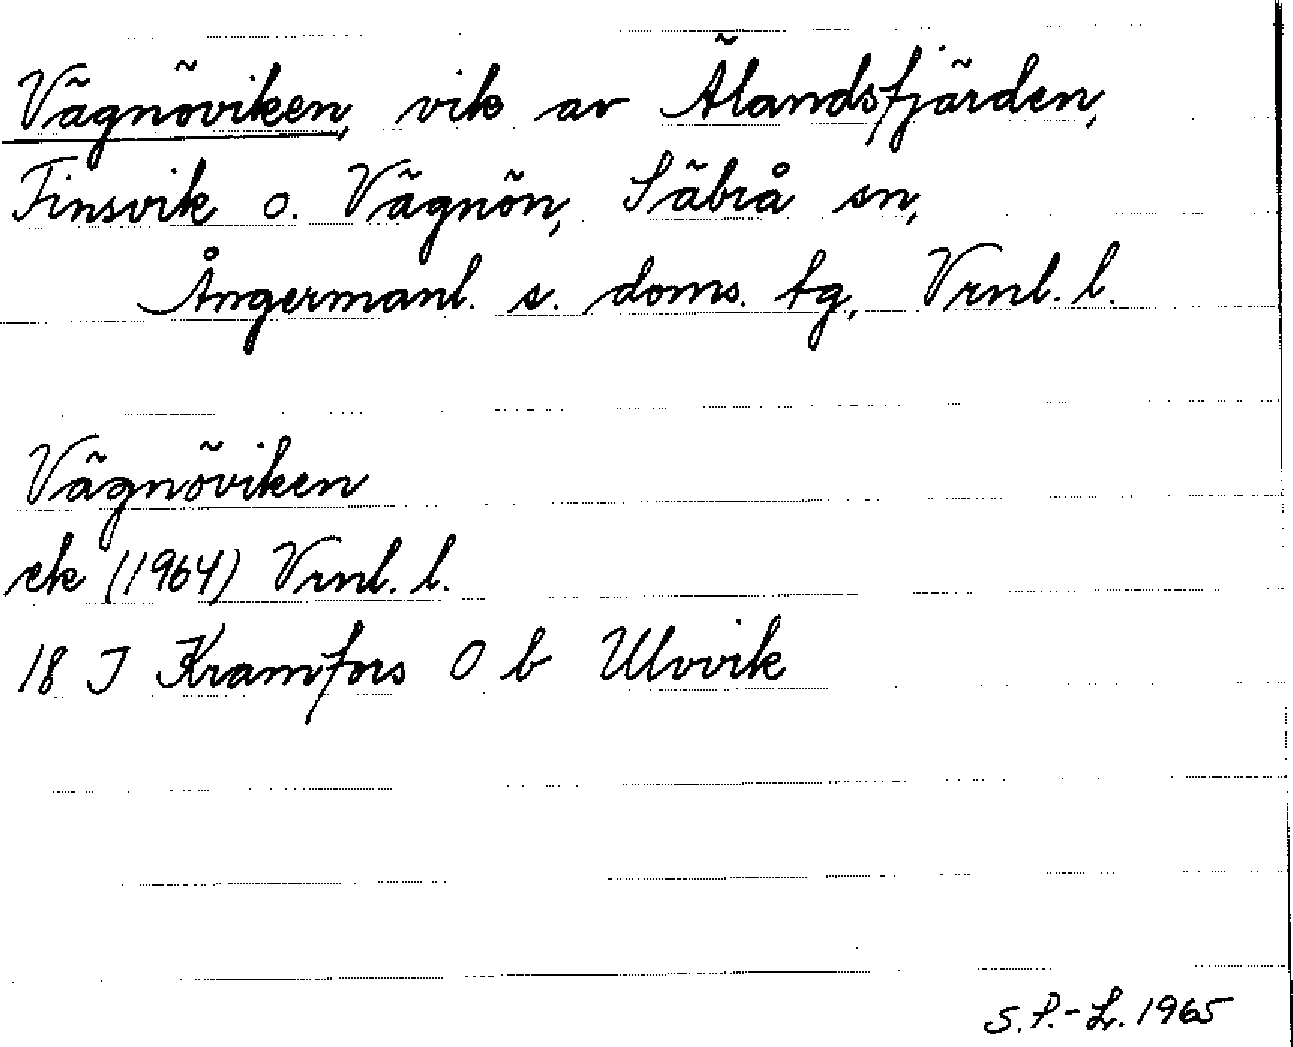 Vägnöviken, vik av Älandsfjärden,
Finsvik o. Vägnön, Säbrå sn,
Ångermanl. s. doms. tg, Vrnl. l.
Vägnöviken
ek (1964) Vrnl. l.
18 J Kramfors O b Ulvvik
S.P.-L. 1965